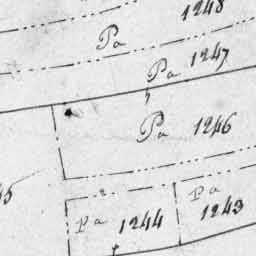 1248
Pa
Pa 1247
Pa 1246
Pa 1244
Pa 1243